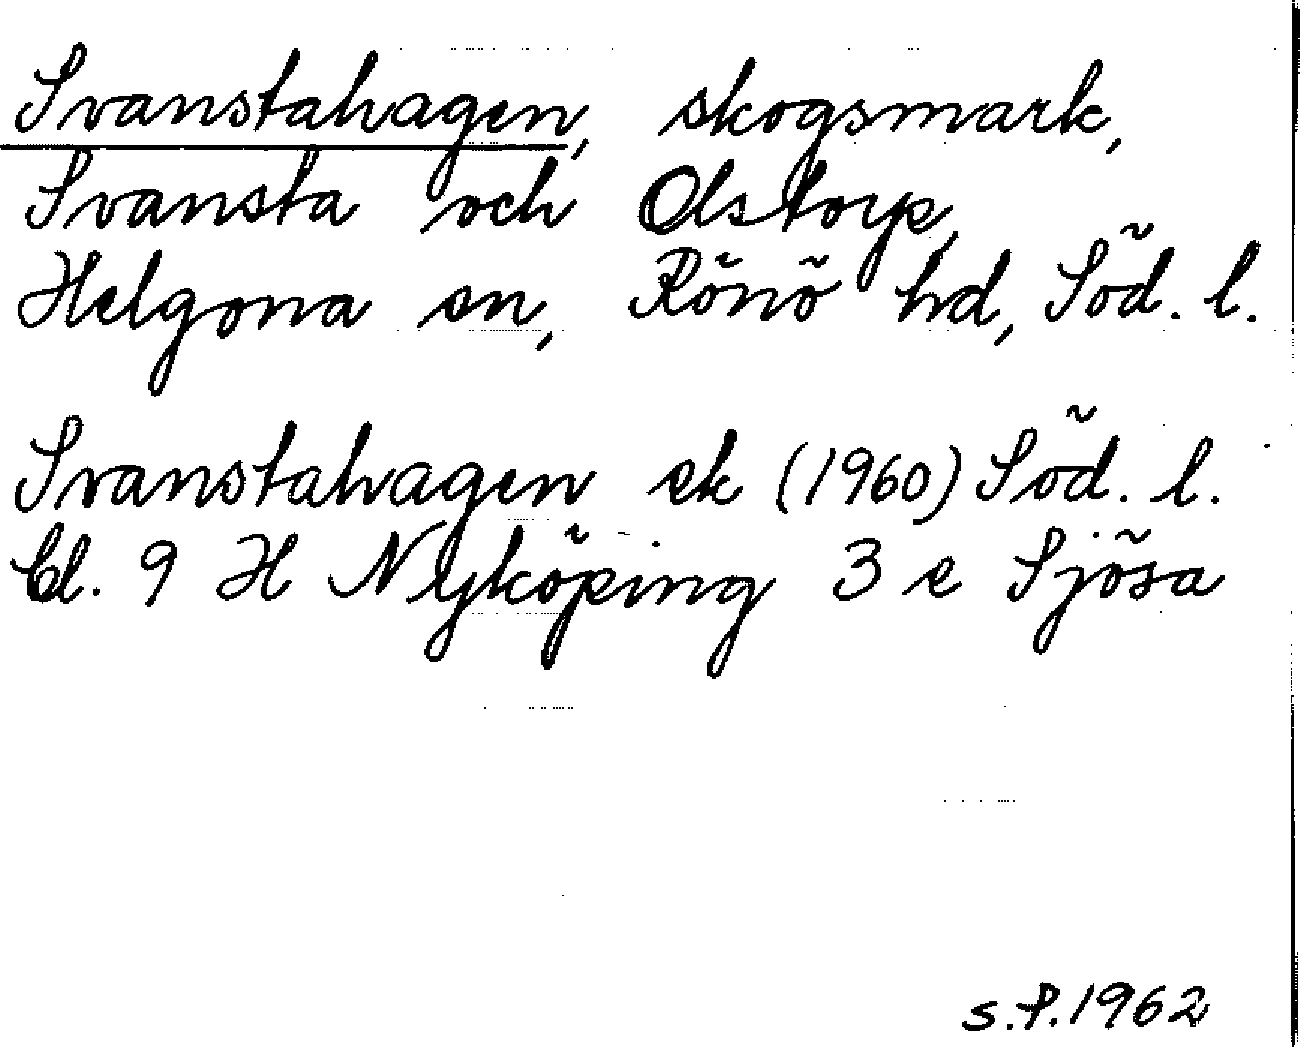 Svanstahagen, skogsmark,
Svansta och Olstorp,
Helgona sn, Rönö hd, Söd. l.
Svanstahagen ek (1960) Söd. l.
bl. 9 H Nyköping 3 e Sjösa
S.P. 1962